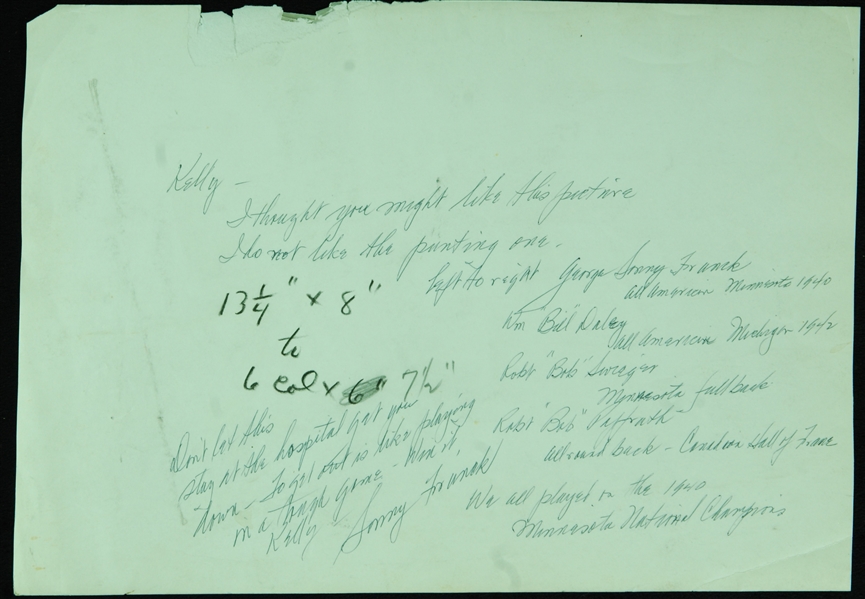 Kelly -
I thought you might like this picture
I do not like the punting one.
left to right George Sonny Franck
all American Minnesota 1940
Wm "Bill" Daley
all American Michigan 1942
Robt "Bob" Sweiger
Minnesota full back
Robt "Bob" Paffrath
all round back - Canadian Hall of Fame
We all played on the 1940
Minnesota National Champions
13 1/4" x 8"
to
6 col x 6" 7 1/2"
Don't let this
stay at the hospital get you
down - To get out is like playing
in a tough game - Win it,
Kelly Sonny Franck